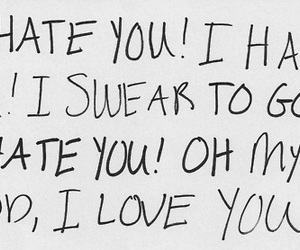 HATE YOU! I HA
! I SWEAR TO GO
ATE YOU! OH MY
OD, I LOVE YOU